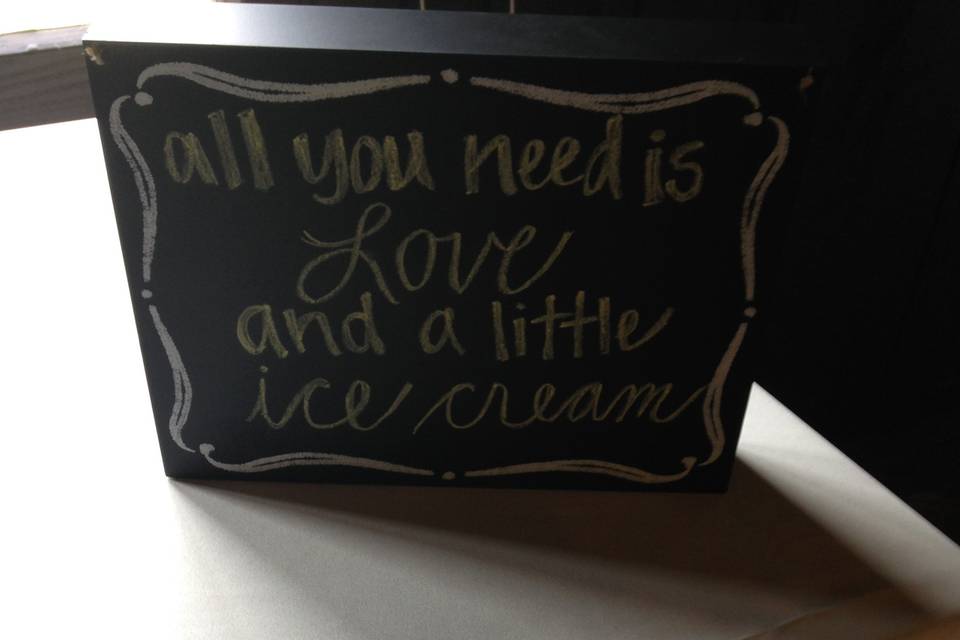 all you need is
Love
and a little
ice cream